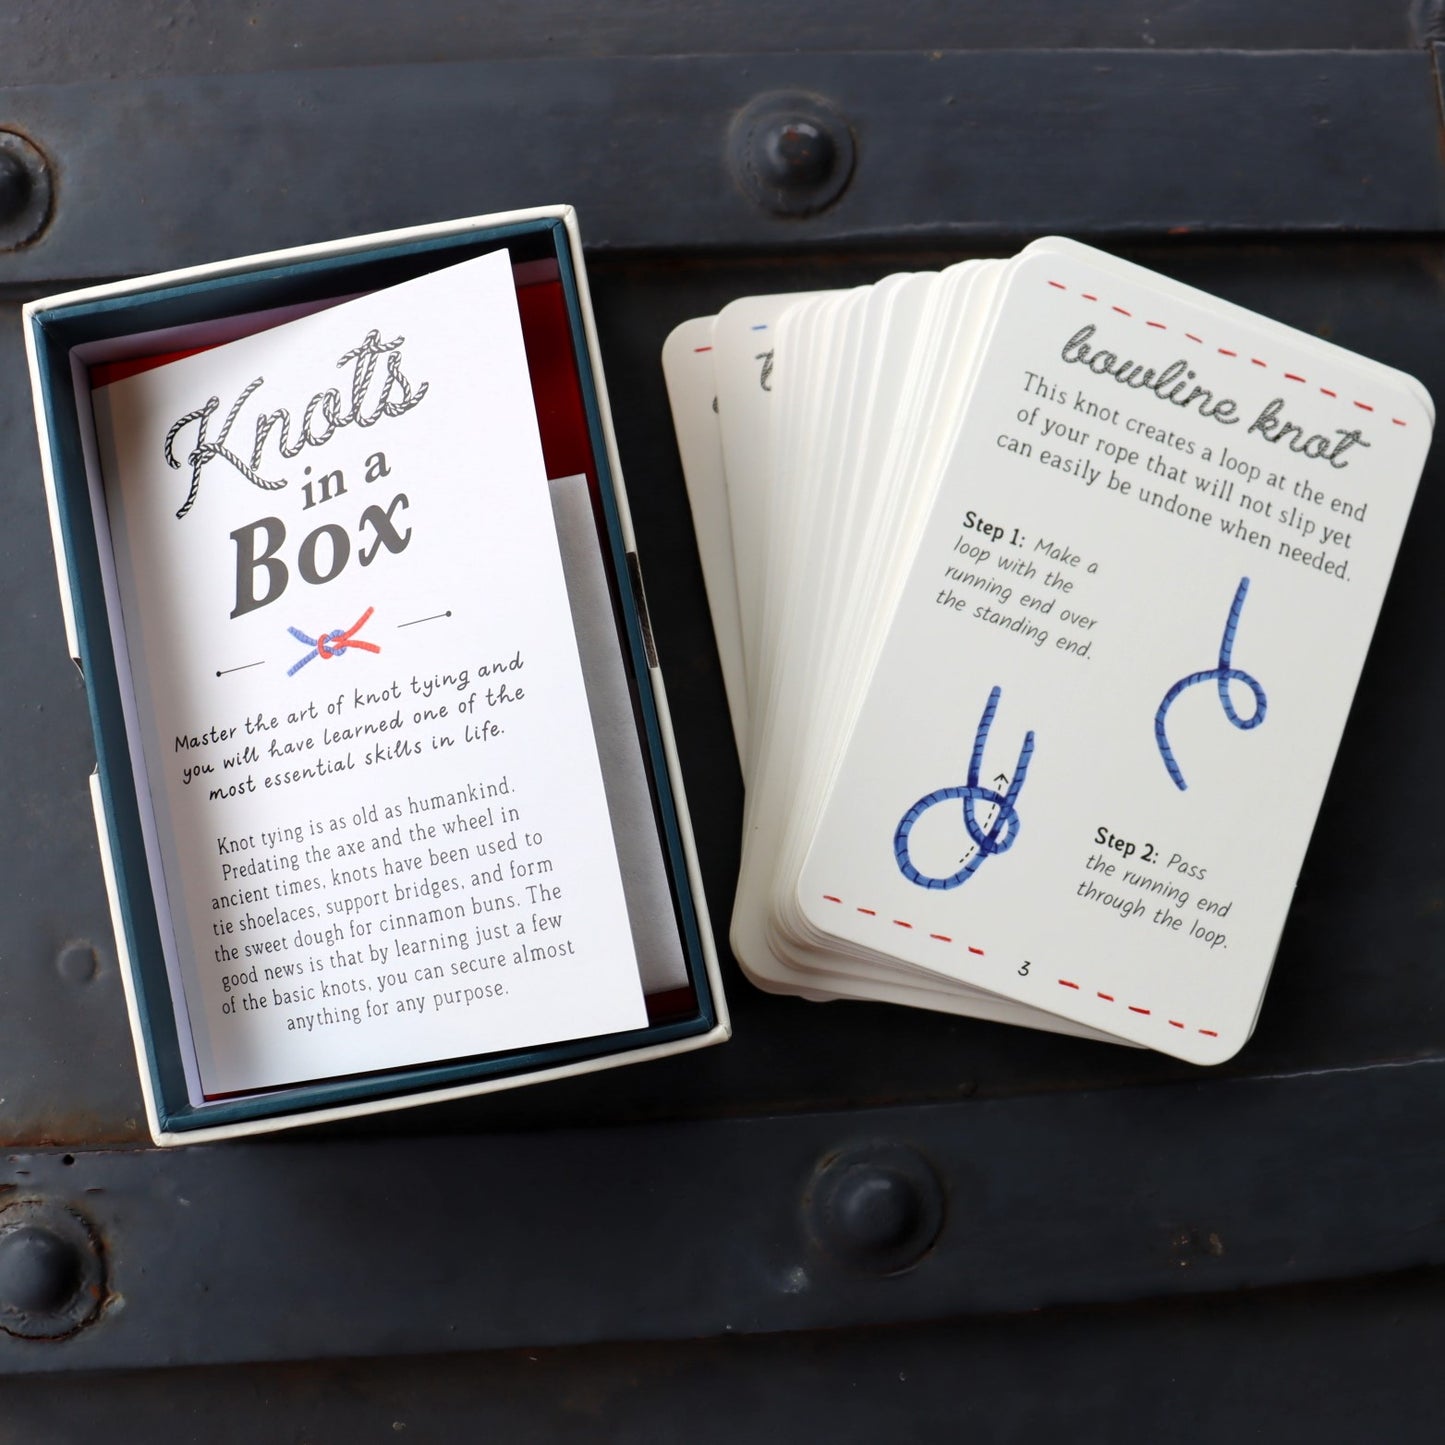 Knots
in a
Box
Master the art of knot tying and
you will have learned one of the
most essential skills in life.
Knot tying is as old as humankind.
Predating the axe and the wheel in
ancient times, knots have been used to
tie shoelaces, support bridges, and form
the sweet dough for cinnamon buns. The
good news is that by learning just a few
of the basic knots, you can secure almost
anything for any purpose.
bowline knot
This knot creates a loop at the end
of your rope that will not slip yet
can easily be undone when needed.
Step 1: Make a
loop with the
running end over
the standing end.
Step 2: Pass
the running end
through the loop.
3